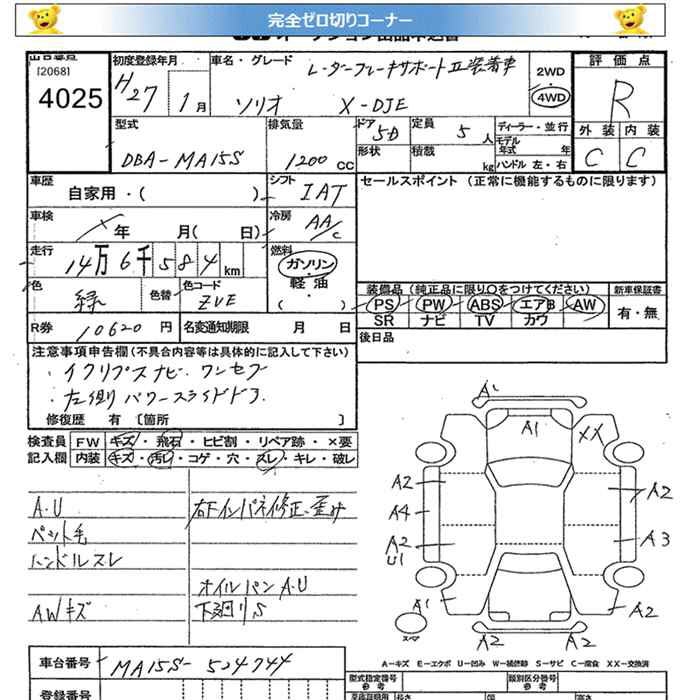 完全ゼロ切りコーナー
[2068]
4025
初度登録年月
H27 1月
車名・グレード
レーダーブレーキサポートⅡ装着車
ソリオ X-DJE
2WD
4WD
評価点
R
外装 内装
C C
型式
DBA-MA15S
排気量
1200 CC
ドア 5D
定員 5人
形状
積載 kg
ディーラー・並行
モデル年式 年
ハンドル 左・右
車歴
自家用・( )
シフト IAT
セールスポイント(正常に機能するものに限ります)
車検
年 月( 日)
冷房 AA/C
走行
14万6千584km
燃料
ガソリン・
軽油・
( )
色 緑
色替
色コード ZVE
装備品(純正品に限り○をつけてください)
PS PW ABS エアB AW
SR ナビ TV カワ
新車保証書
有・無
R券 10620円
名変通知期限 月 日
後日品
注意事項申告欄(不具合内容等は具体的に記入して下さい)
・イクリプスナビ ワンセグ
・左側パワースライドドア
修復歴 有 〔箇所 〕
検査員記入欄
FW キズ・飛石・ヒビ割・リペア跡・×要
内装 キズ・汚レ・コゲ・穴・スレ・キレ・破レ
A.U
右下インパネ修正、歪み
ペット毛
ハンドルスレ
オイルパンA.U
AWキズ
下廻りS
A1
A1
XX
A2
A2
A4
A2
U1
A3
A1
A2
スペア
A2
A2
A-キズ E-エクボ U-凹み W-補修跡 S-サビ C-腐食 XX-交換済
車台番号 MA15S-524744
登録番号
型式指定番号
参考
類別区分番号
参考
長さ
幅
高さ